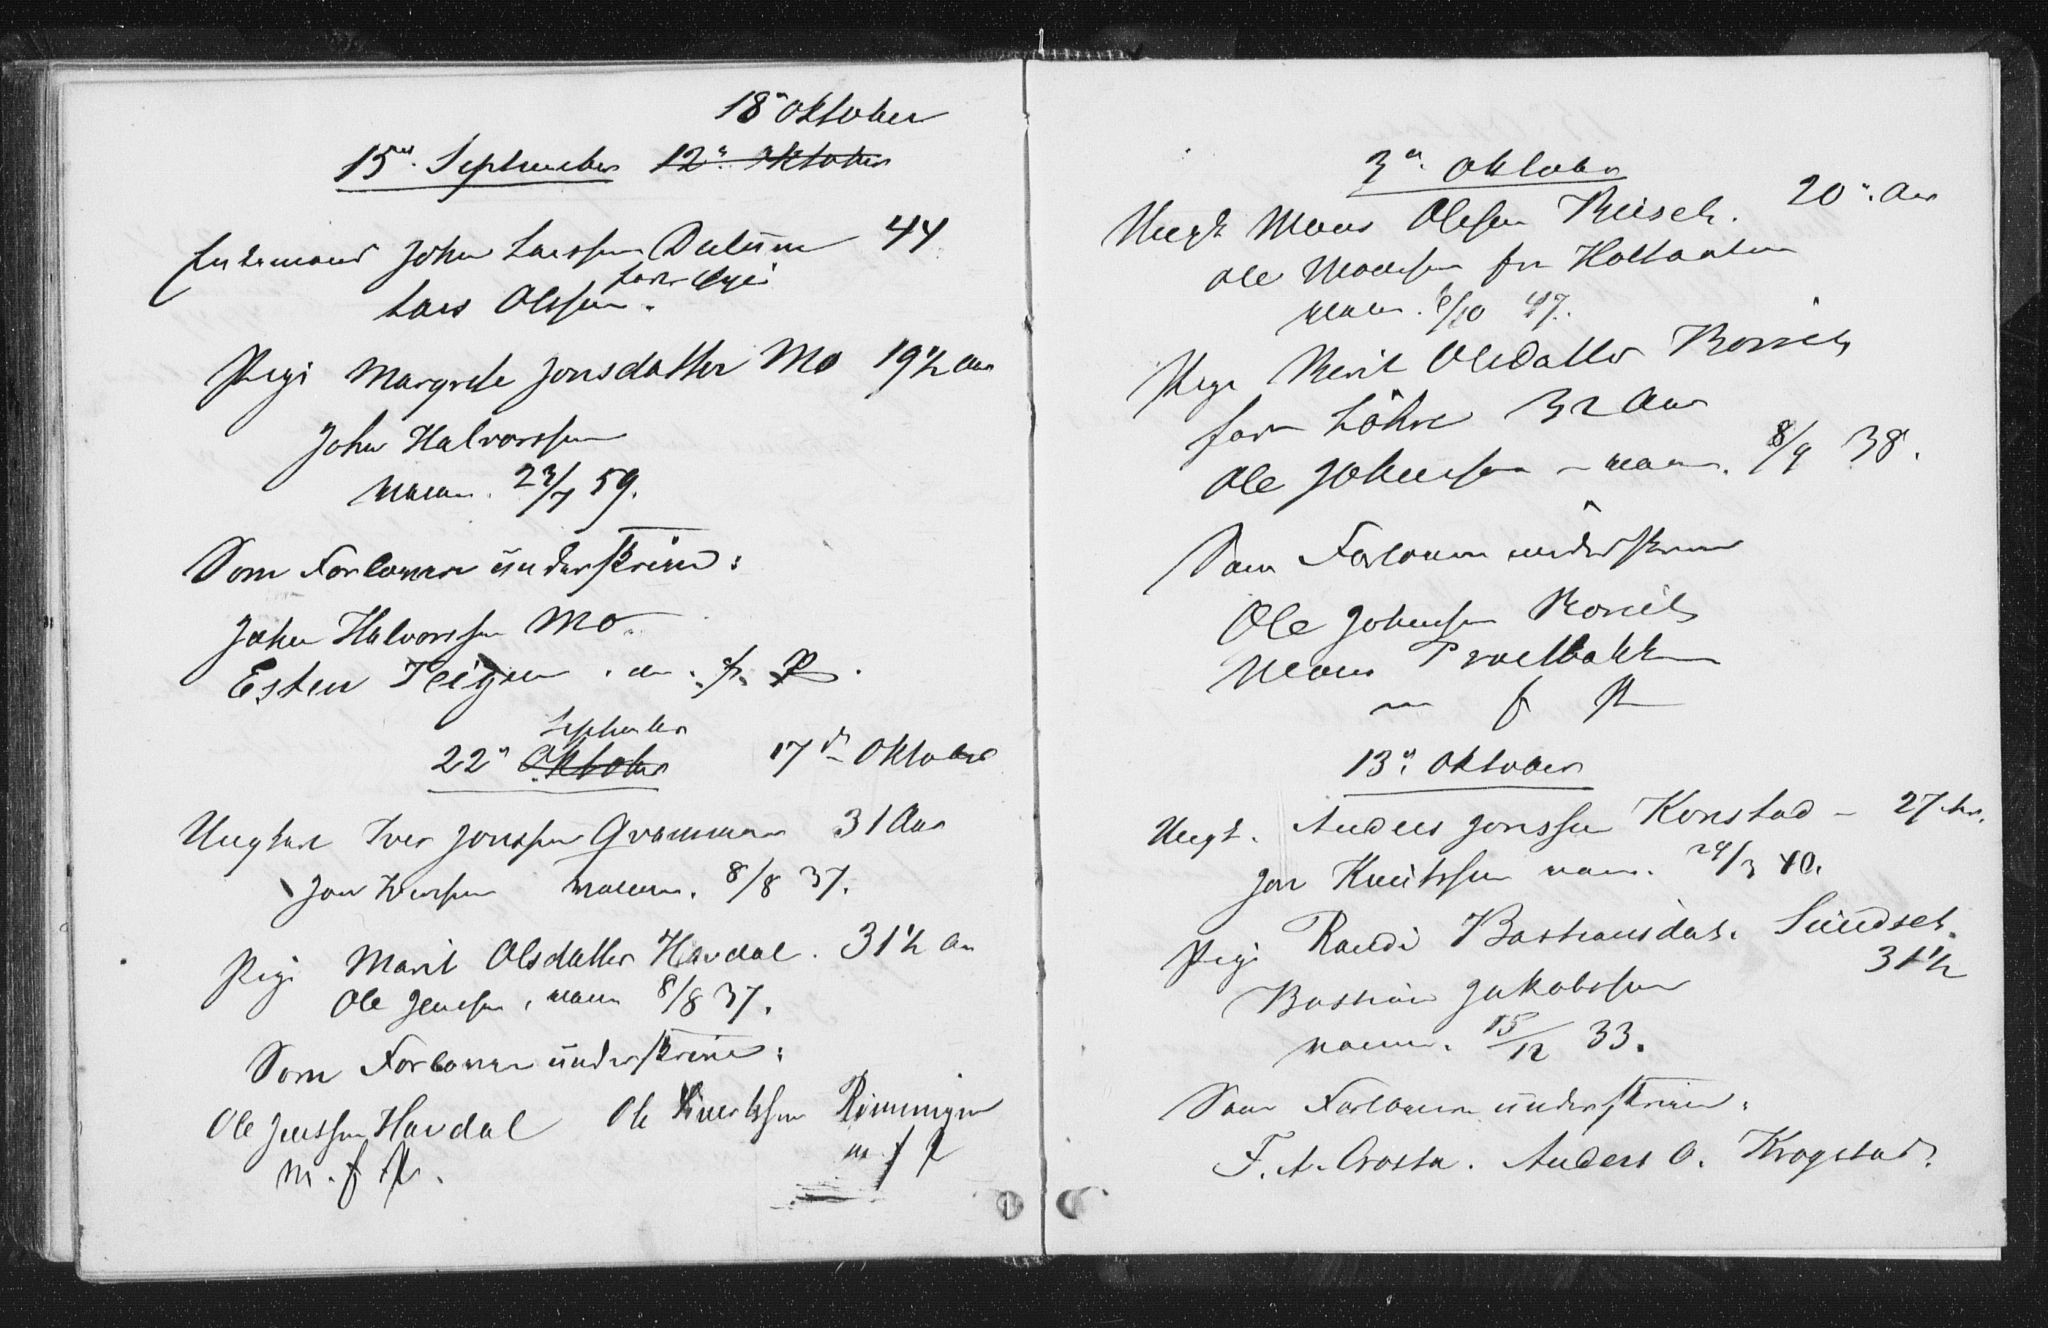 18 Oktober
15de September 12te Oktober
Enkemand John Larssen Dalum 44
Lars Olssen.
Pige Margrete Jonsdatter Mo 19½ Aar
John Halvorssen
vacc. 23/7 59.
Som Forlovere underskrive:
John Halvorssen Mo
Esten Teigen . m. f. P.
September
22de Oktober 17de Oktober
Ungkarl Iver Jonssen Gvammen 31 Aar
Jon Iversen vacc. 8/8 37.
Pige Marit Olsdatter Havdal. 31½ Aar
Ole Jenssen, vacc 8/8 37.
Som Forlovere underskrive:
Ole Jenssen Havdal Ole Rimmingen
m. f. P. m f P
3de Oktober
Ungk Mons Olesen 20. Aar
Ole Monsen
vacc. 6/10 47.
Pige Berit Oledatter
for Löhre 32 Aar
Ole Johnsen – vacc. 8/9 38.
Som Forlovere underskrive
Ole Johnsen
Mons
m f P
13de Oktober
Ungk. Anders Jonssen Konstad – 27 Aar.
Jon Knutssen vacc. 29/3 40.
Pige Randi Bastiansdat. Sundset.
31½
Bastian Jakobssen
vacc. 15/12 33.
Som Forlovere underskrive:
F. A. Crosta. Anders O. Krogstad.